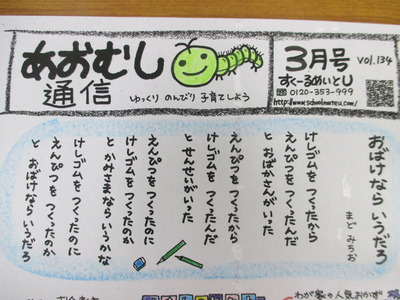 あおむし
通信
ゆっくり のんびり 子育てしよう
3月号 vol.134
すくーるめいとU
0120-353-999
http://www.schoolmateu.com/
おばけなら いうだろ
まど みちお
けしゴムを つくったから
えんぴつを つくったんだ
と おばかさんがいった
えんぴつを つくったから
けしゴムを つくったんだ
と せんせいがいった
えんぴつを つくったのに
けしゴムを つくったのか
と かみさまならいうかな
けしゴムを つくったのに
えんぴつを つくったのか
と おばけなら いうだろ
わが家の人気おかず